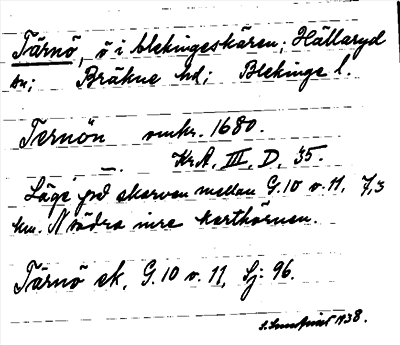 Tärnö, ö i blekingeskären; Hällaryd
sn; Bräkne hd; Blekinge l.
Ternön omkr. 1680.
Kr.A. III, D. 35.
Läge på skarven mellan G.10 v. 11, 7,3
km. N södra inre karthörnen.
Tärnö sk, G. 10 v. 11, Sj: 96.
1938.